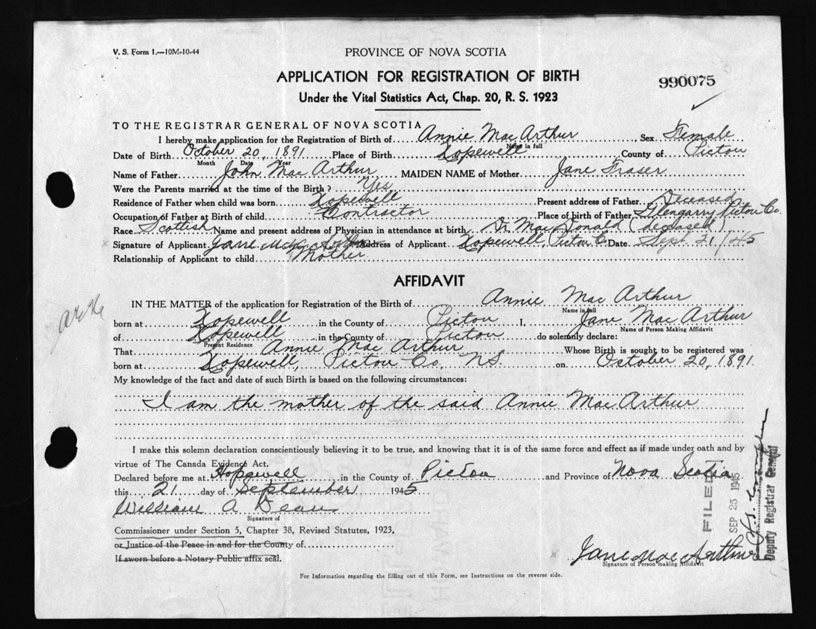 V. S. Form 1.—10M-10-44
PROVINCE OF NOVA SCOTIA
APPLICATION FOR REGISTRATION OF BIRTH
990075
Under the Vital Statistics Act, Chap. 20, R. S. 1923
TO THE REGISTRAR GENERAL OF NOVA SCOTIA
I hereby make application for the Registration of Birth of Annie MacArthur Sex Female
Name in full
Date of Birth October 20, 1891 Place of Birth Hopewell County of Pictou
Month Date Year
Name of Father John MacArthur MAIDEN NAME of Mother Jane Fraser
Were the Parents married at the time of the Birth? Yes
Residence of Father when child was born Hopewell Present address of Father Deceased
Occupation of Father at Birth of child Contractor Place of birth of Father Glengarry Pictou Co.
Race Scottish Name and present address of Physician in attendance at birth Dr MacDonald (deceased)
Signature of Applicant Jane MacArthur Address of Applicant Hopewell, Pictou Co. Date Sept. 21/45
Relationship of Applicant to child Mother
AFFIDAVIT
IN THE MATTER of the application for Registration of the Birth of Annie MacArthur
Name in full
born at Hopewell in the County of Pictou I, Jane MacArthur
Name of Person Making Affidavit
of Hopewell in the County of Pictou do solemnly declare:
Present Residence
That Annie MacArthur Whose Birth is sought to be registered was
born at Hopewell, Pictou Co. N.S. on October 20, 1891
My knowledge of the fact and date of such Birth is based on the following circumstances:
I am the mother of the said Annie MacArthur
I make this solemn declaration conscientiously believing it to be true, and knowing that it is of the same force and effect as if made under oath and by
virtue of The Canada Evidence Act.
Declared before me at Hopewell in the County of Pictou and Province of Nova Scotia
this 21 day of September 1945
William A Dean
Signature of
Commissioner under Section 5, Chapter 38, Revised Statutes, 1923,
or Justice of the Peace in and for the County of
If sworn before a Notary Public affix seal.
Jane MacArthur
Signature of Person making Affidavit
FILED
SEP 25 1945
Deputy Registrar General
For Information regarding the filling out of this Form, see Instructions on the reverse side.